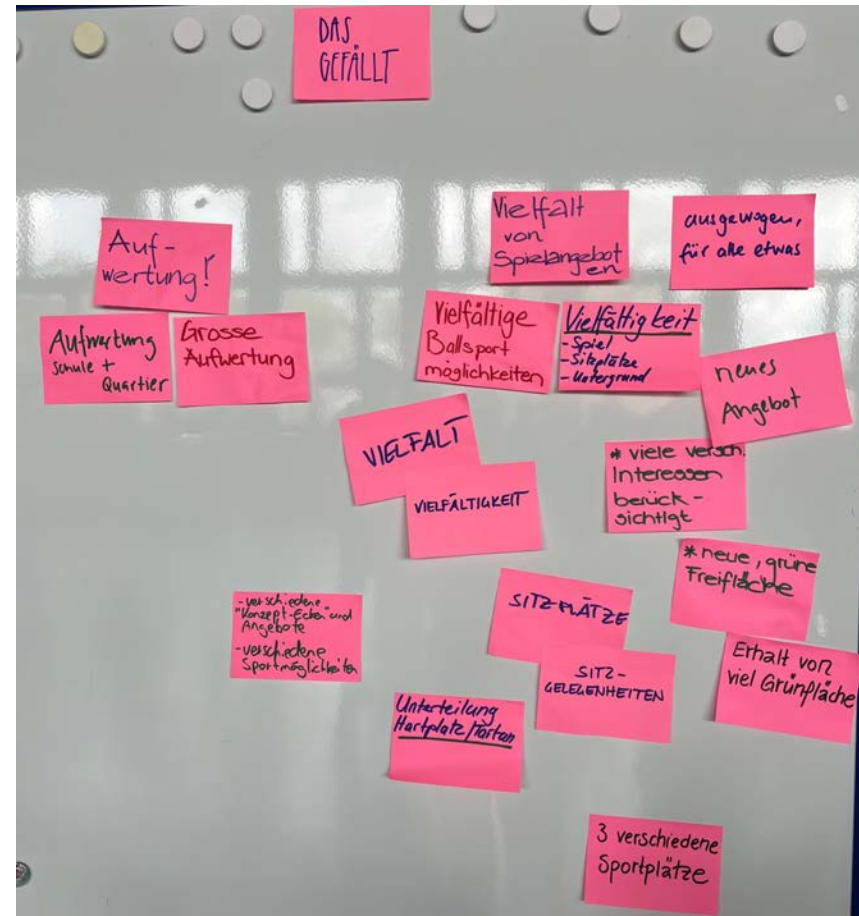 DAS
GEFÄLLT
Auf-
wertung!
Aufwertung
Schule +
Quartier
Grosse
Aufwertung
Vielfalt
von
Spielangebot
en
ausgewogen,
für alle etwas
Vielfältige
Ballsport
möglichkeiten
Vielfältigkeit
- Spiel
- Sitzplätze
- Untergrund
neues
Angebot
VIELFALT
VIELFÄLTIGKEIT
* viele versch.
Interessen
berück-
sichtigt
* neue, grüne
Freifläche
- verschiedene
"Konzept-Ecken" und
Angebote
- verschiedene
Sportmöglichkeiten
SITZPLÄTZE
SITZ-
GELEGENHEITEN
Erhalt von
viel Grünfläche
Unterteilung
Hartplatz/Tartan
3 verschiedene
Sportplätze